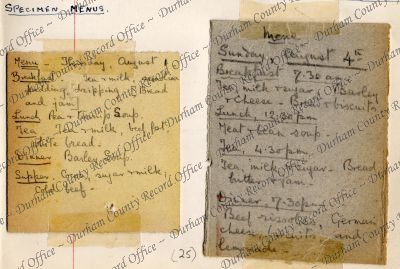 SPECIMEN MENUS.
Menu Thursday August 1
Breakfast Tea & milk,
pudding, dripping, Bread
and jam
Lunch Pea Soup.
Tea Tea & milk, beef
white bread.
Dinner Barley Soup.
Supper sugar & milk,
Cold beef.
Menu
Sunday August 4th
Breakfast 7.30 am
Tea, milk & sugar, Barley
& cheese Bread biscuits
Lunch, 12.30 pm
Meat & bean soup.
Tea 4.30 pm
Tea, milk, sugar Bread
butter & jam.
Dinner 7.30 pm
Beef rissoles, German
cheese, biscuits and
lemonade
(25)
~ Durham County Record Office ~ Durham County Record Office ~